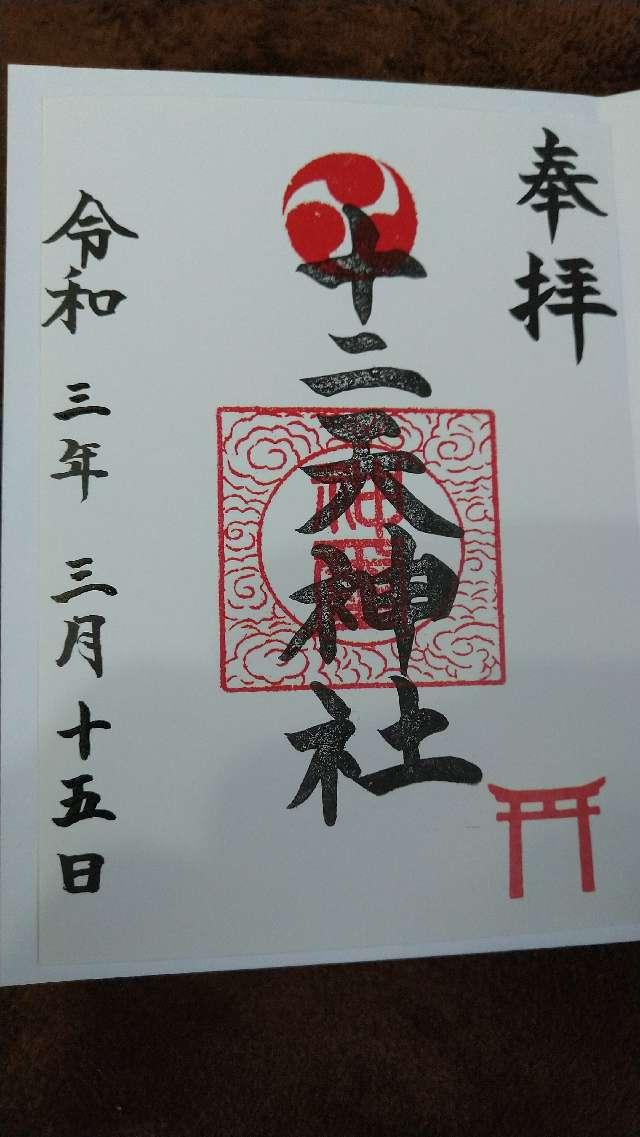 奉拝
十二天神社
令和三年三月十五日